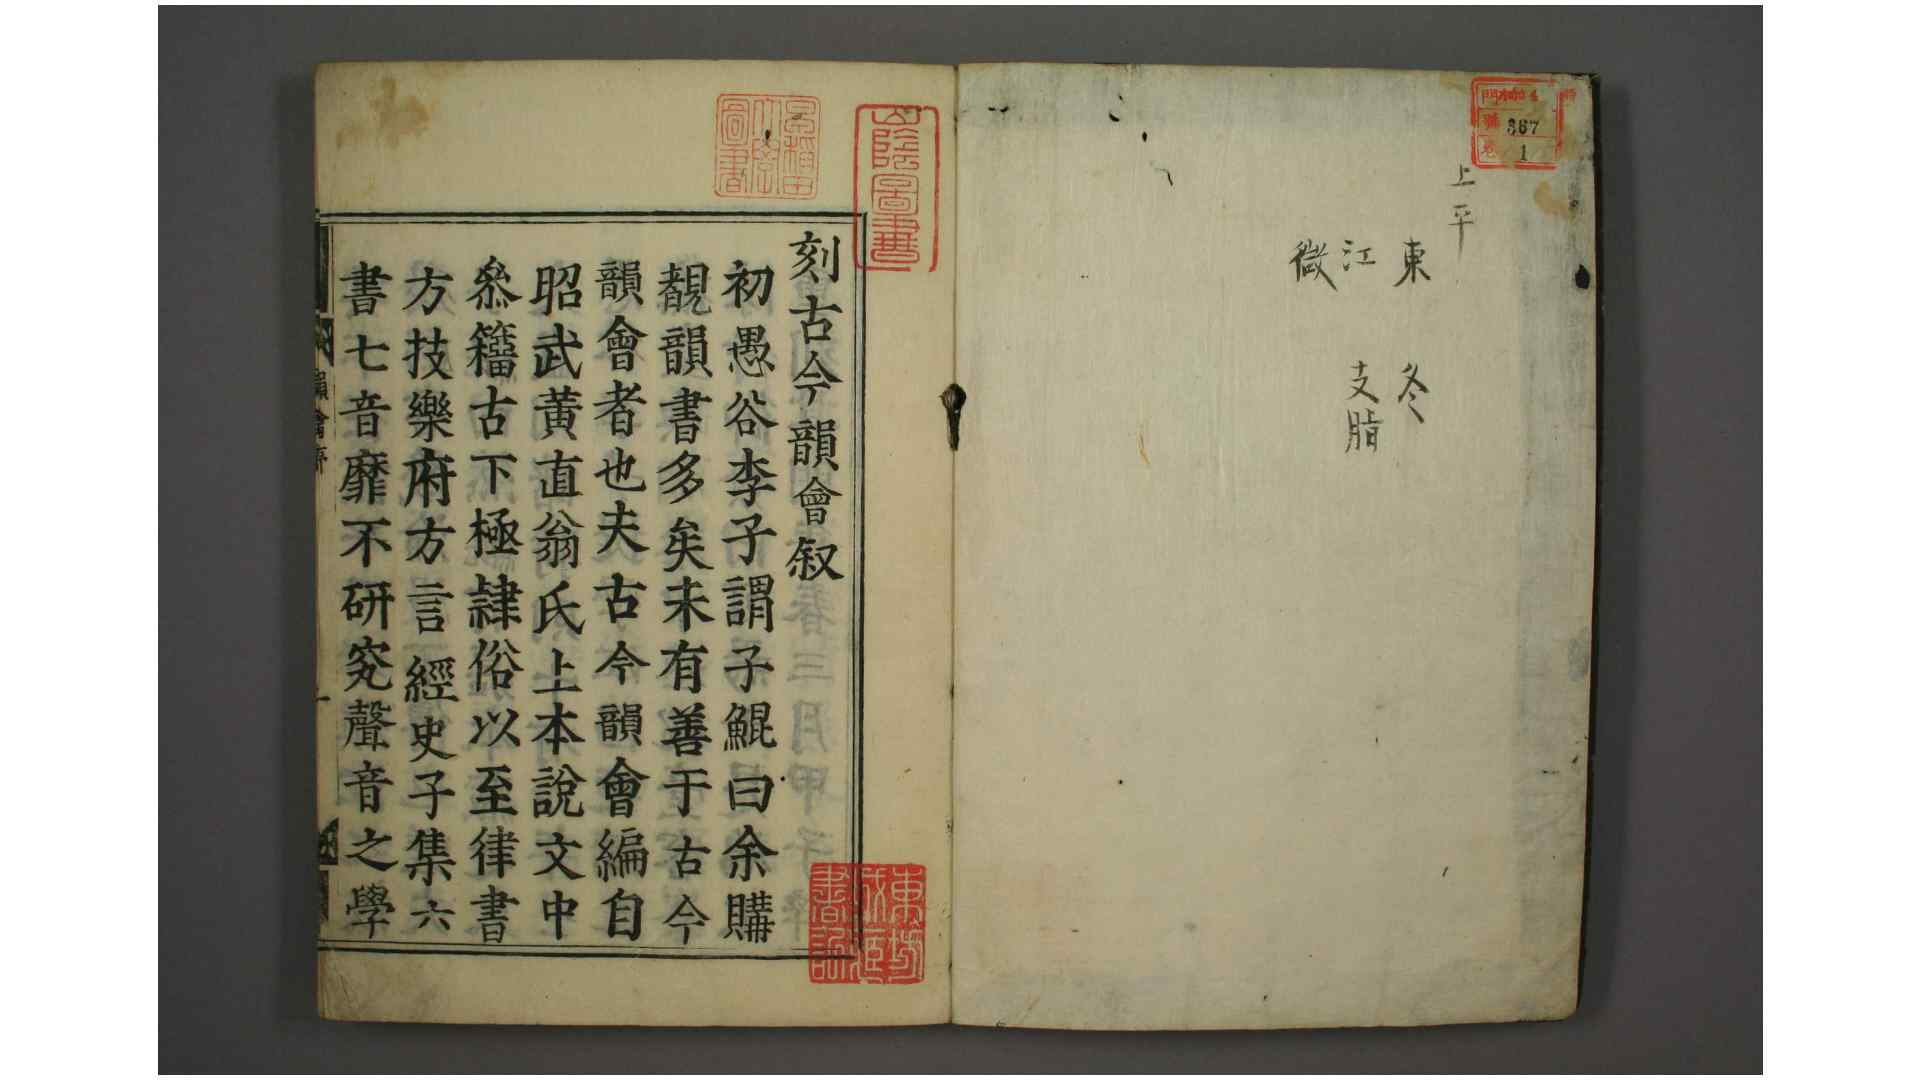 上平
東　冬
江　支脂
微
門
號 367
卷 1
山陰圖書
早稲田大學圖書
刻古今韻會叙
初愚谷李子謂子鯤曰余購
覩韻書多矣未有善于古今
韻會者也夫古今韻會編自
昭武黃直翁氏上本說文中
叅籀古下極隷俗以至律書
方技樂府方言經史子集六
書七音靡不研究聲音之學
韻會序